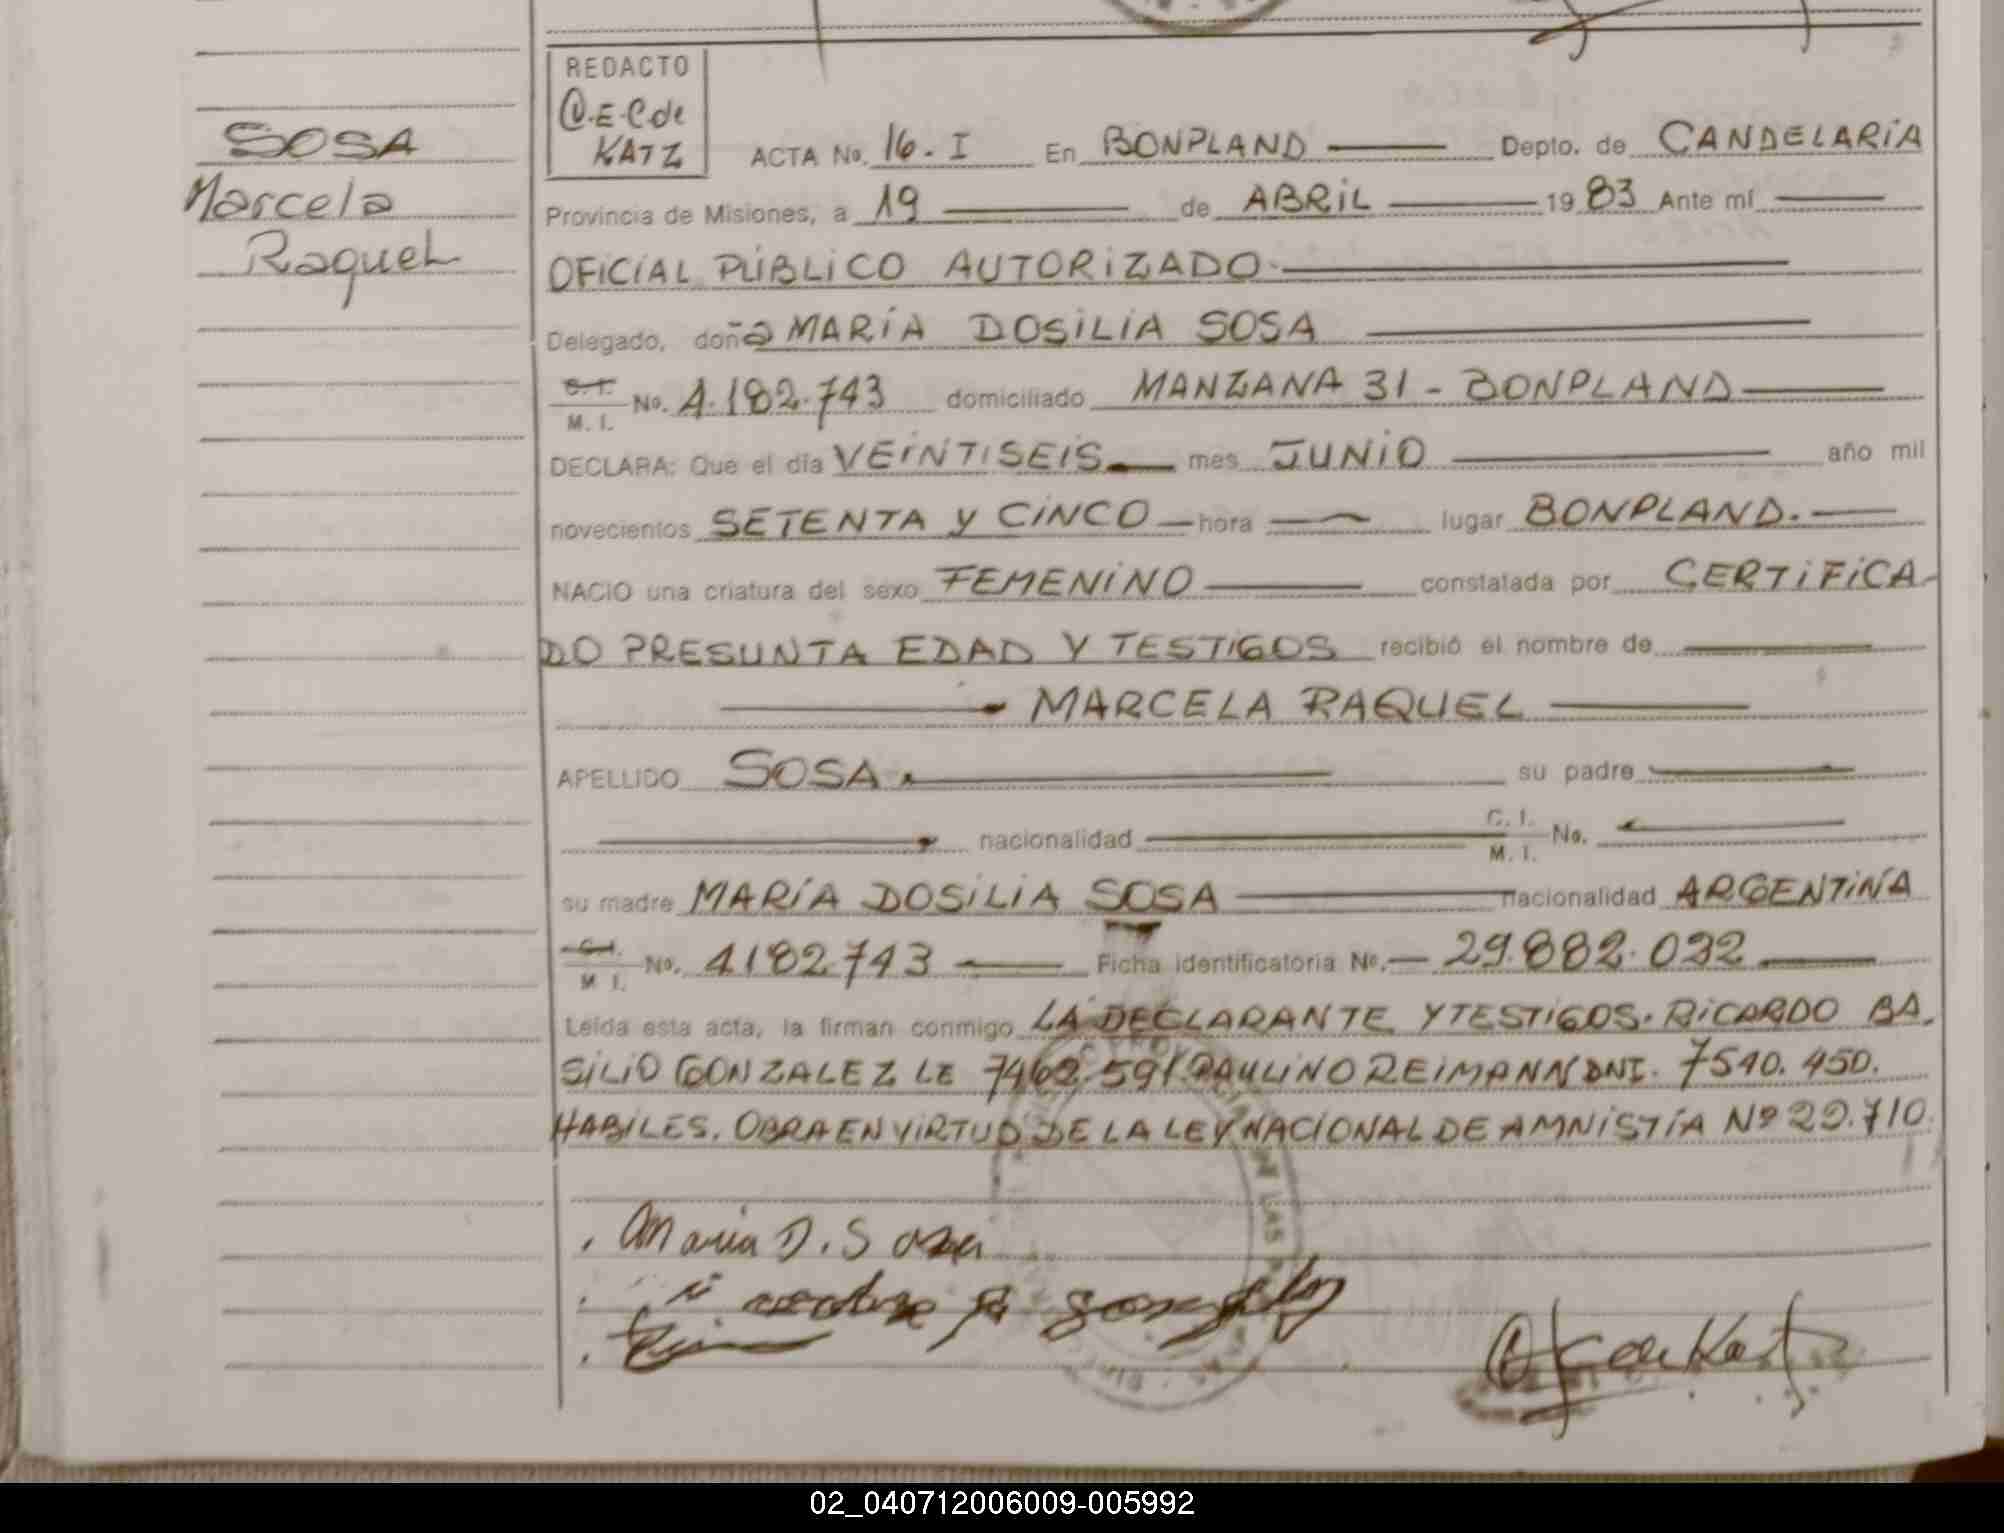 SOSA
Marcela
Raquel
REDACTO
@.E.C de
KATZ
ACTA No. 16. I En BONPLAND Depto. de CANDELARIA
Provincia de Misiones, a 19 de ABRIL 19 83 Ante mí
OFICIAL PÚBLICO AUTORIZADO.
Delegado, doña MARÍA DOSILIA SOSA
C. I. / M. I. No. 4.182.743 domiciliado MANZANA 31 - BONPLAND
DECLARA: Que el día VEINTISEIS mes JUNIO año mil
novecientos SETENTA Y CINCO hora lugar BONPLAND.
NACIO una criatura del sexo FEMENINO constatada por CERTIFICA-
DO PRESUNTA EDAD Y TESTIGOS recibió el nombre de
MARCELA RAQUEL
APELLIDO SOSA. su padre
nacionalidad C. I. / M. I. No.
su madre MARÍA DOSILIA SOSA nacionalidad ARGENTINA
C. I. / M. I. No. 4182.743 Ficha identificatoria No. 29.882.032
Leída esta acta, la firman conmigo LA DECLARANTE Y TESTIGOS. RICARDO BA.
SILIO GONZALEZ LE 7462.591. PAULINO REIMANN DNI. 7540.450.
HABILES. OBRA EN VIRTUD DE LA LEY NACIONAL DE AMNISTÍA Nº 22.710.
Maria D. Sosa
02_040712006009-005992